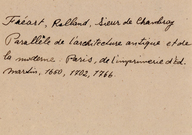 Fréart, Rolland, Sieur de Chambray
Parallèle de l'architecture antique et de
la moderne. Paris, de l'imprimerie d'Ed.
Martin, 1650, 1702, 1766.